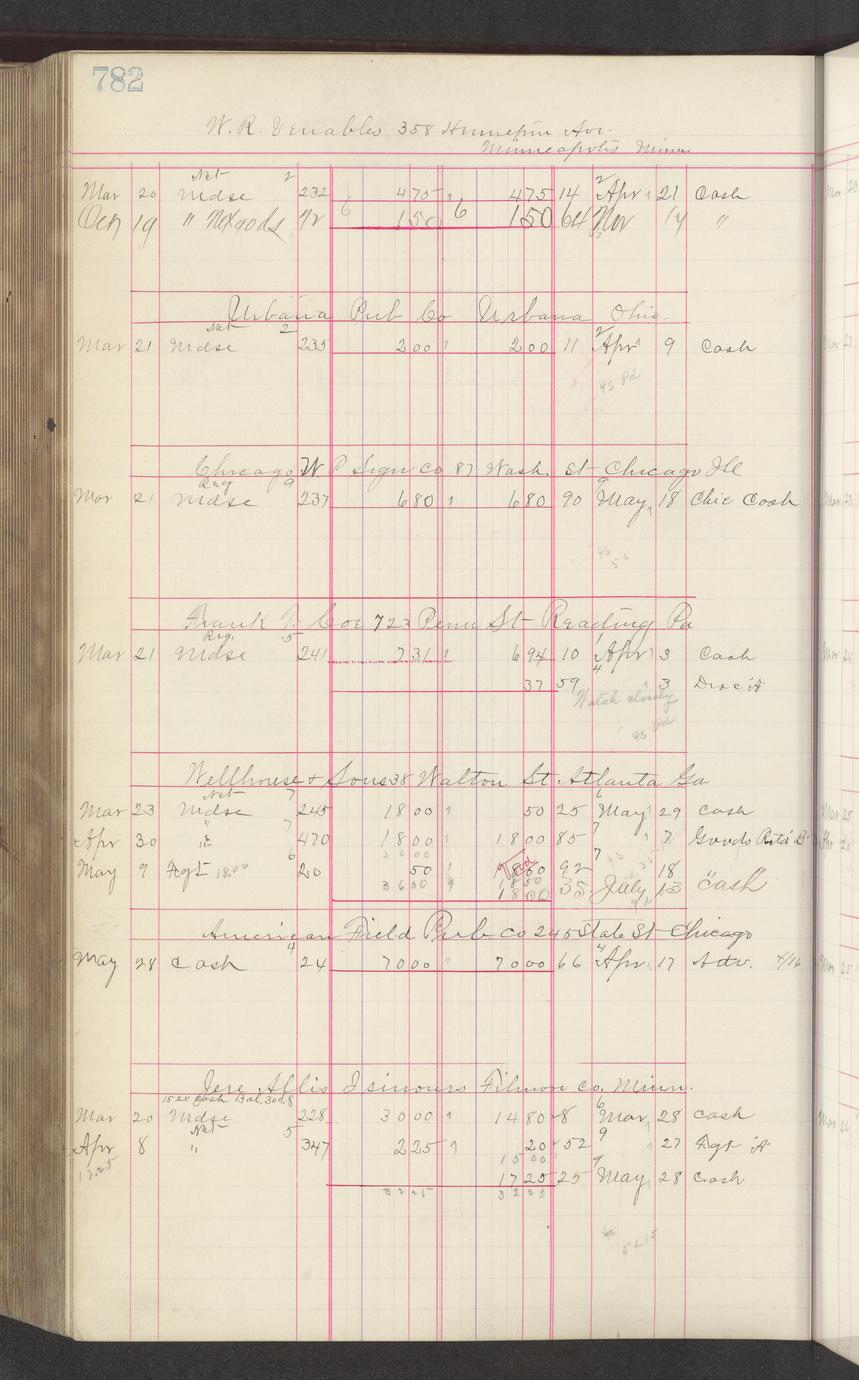 782
W. R. Venables 358 Hennepin Ave.
Minneapolis Minn
Net 2
Mar 20 Mdse 232 475 475 14 Apr 21 Cash
Oct 19 " 72 6 150 6 150 64 Nov 14 "
Urbana Pub Co Urbana Ohio.
Net 2
Mar 21 Mdse 235 200 200 11 Apr 9 Cash
45 Pd
Chicago W P Sign Co 87 Wash. St Chicago Ill
Reg 9
Mar 21 Mdse 237 680 680 90 May 18 Chic Cash
Frank J. Coe 723 Penn St Reading Pa
Reg. 5
Mar 21 Mdse 241 731 694 10 Apr 3 Cash
37 59 3 Disc't
Watch closely
45 Pd
Wellhouse & Sons 38 Walton St Atlanta Ga
Net 7
Mar 23 Mdse 245 1800 50 25 May 29 Cash
Apr 30 " 470 1800 1800 85 7 Goods Retd
3600
May 9 Fgt 18.00 20 50 1850 92 18
3650 1850
1800 35 July 13 "Cash"
American Field Pub Co 245 State St Chicago
May 28 Cash 24 7000 7000 66 Apr 17 Adv. 4/16
Jere Allis Isinours Filmore Co. Minn.
15.00 Cash Bal. 30 d.
Mar 20 Mdse 228 3000 1480 8 Mar 28 Cash
Net 5
Apr 8 " 347 225 20 52 27 Fgt
17.25 1500
1725 25 May 28 Cash
3225 3225